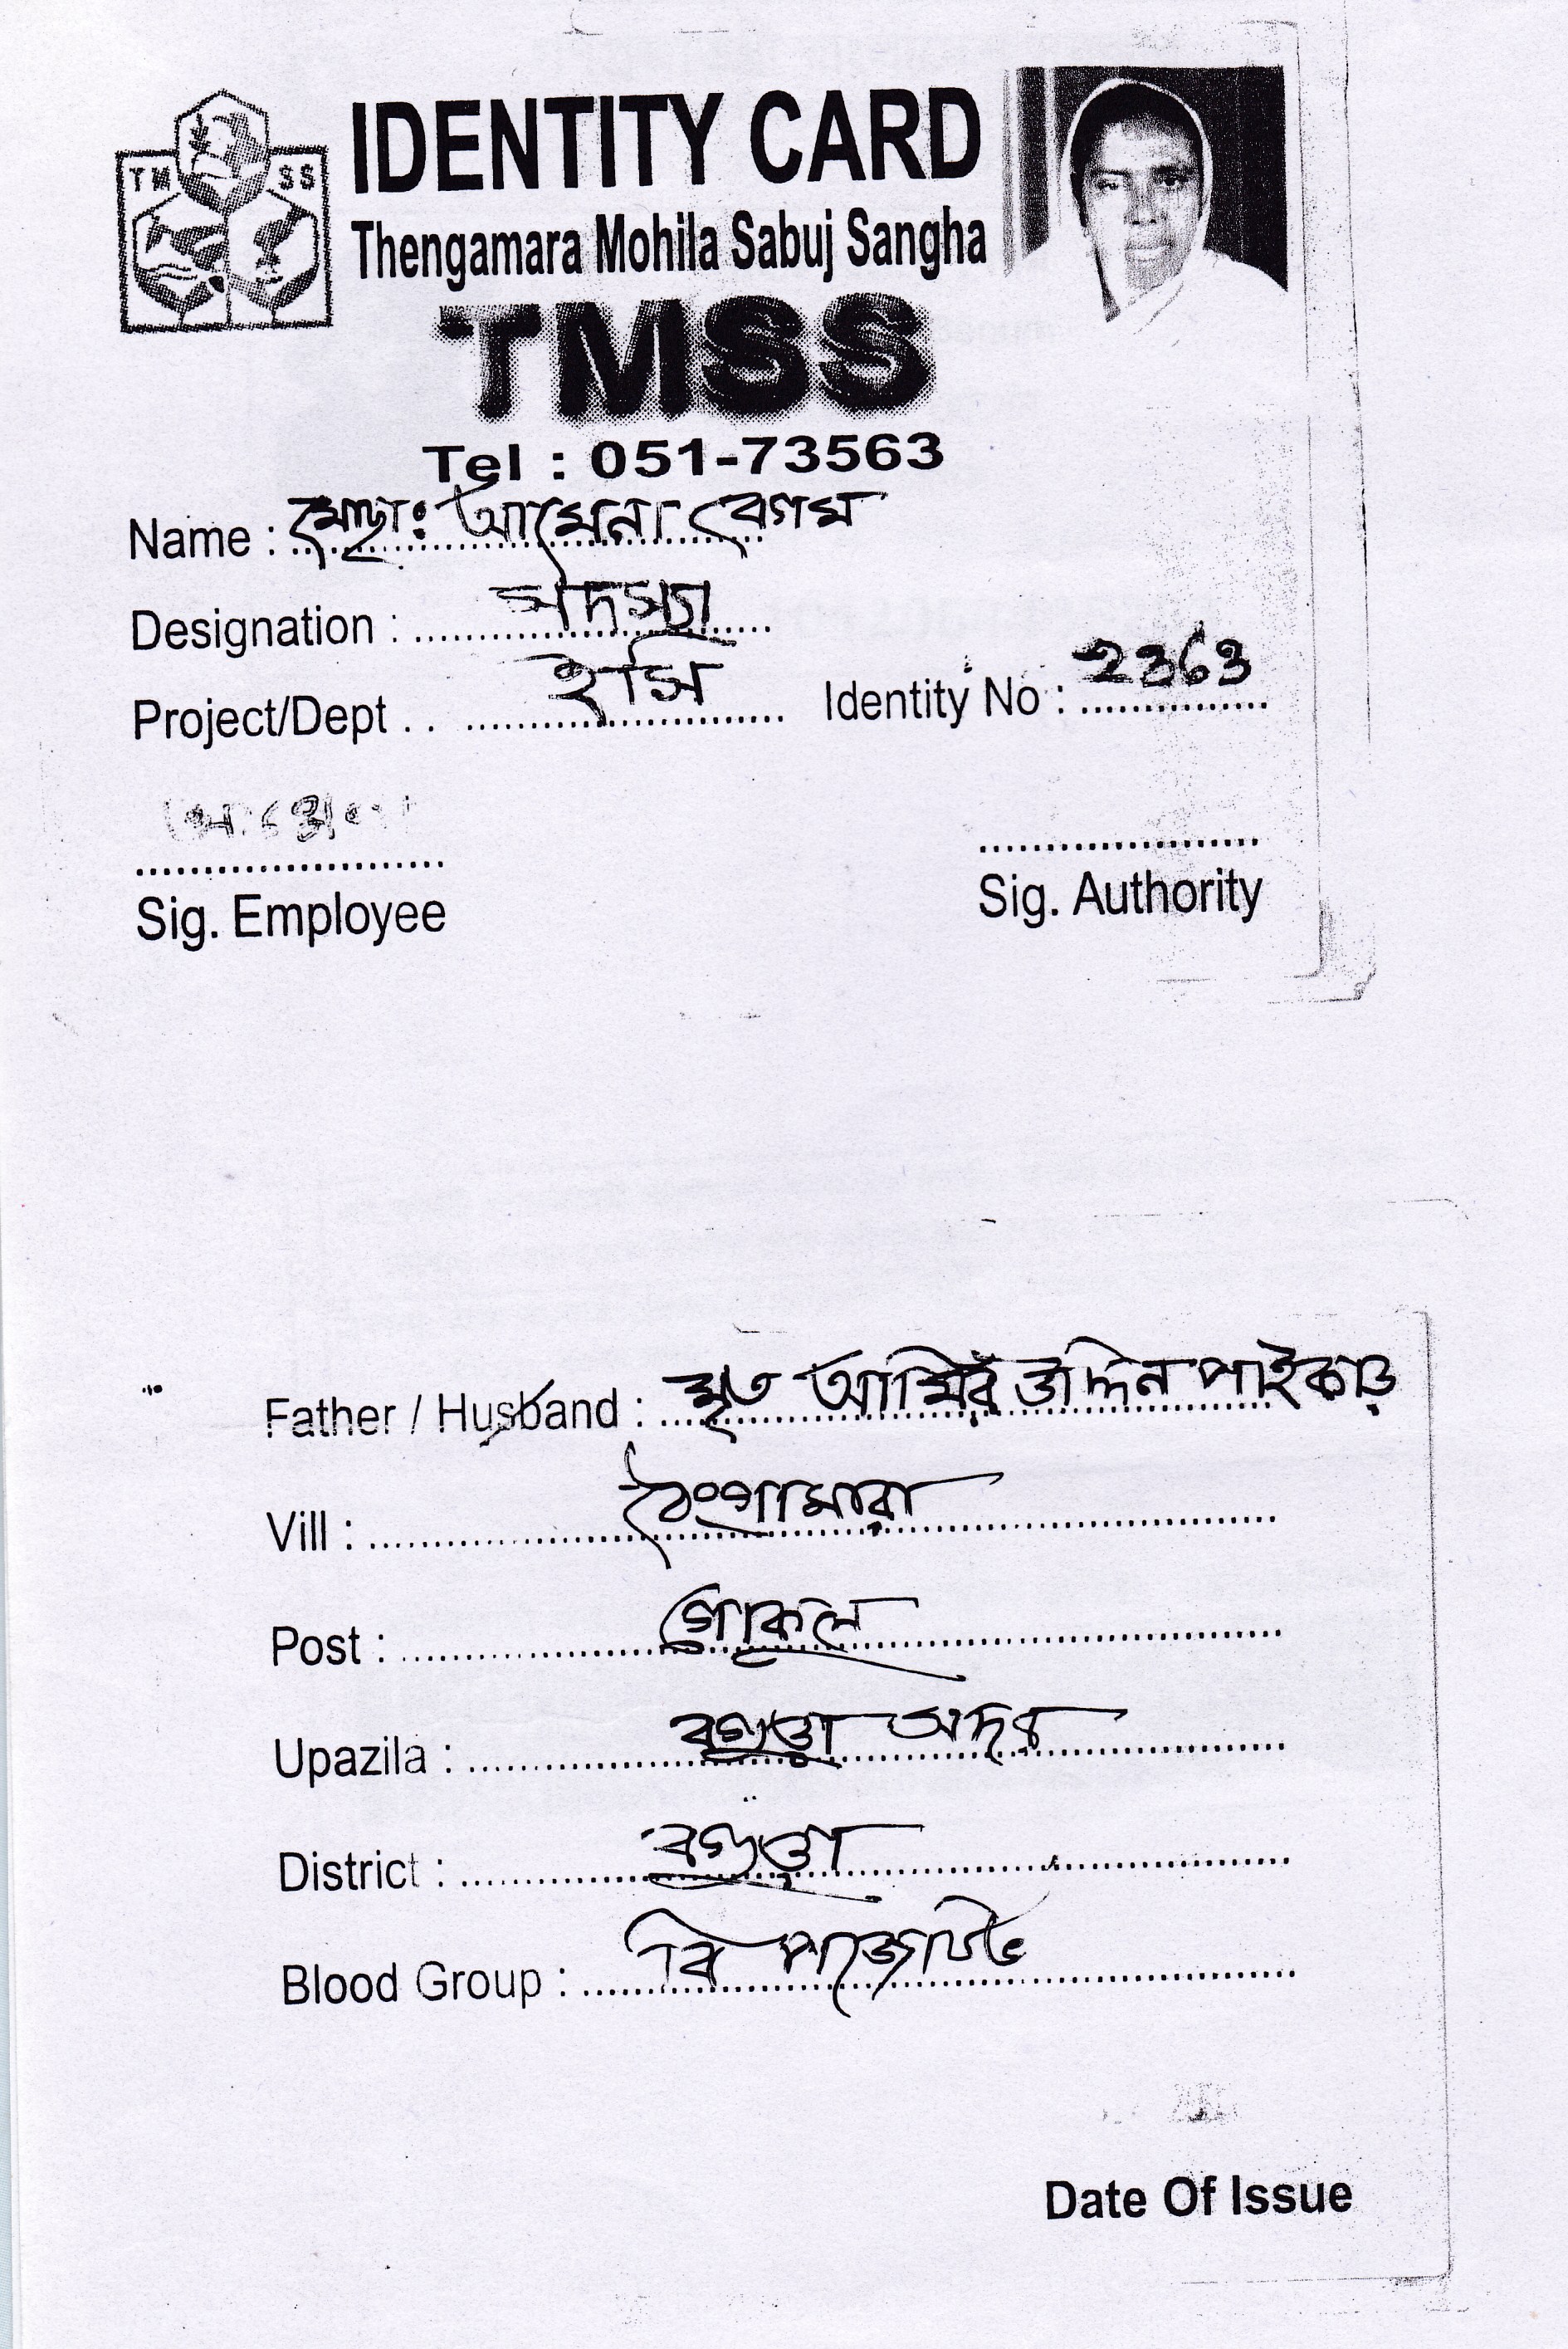 TM SS
IDENTITY CARD
Thengamara Mohila Sabuj Sangha
TMSS
Tel : 051-73563
Name : মোছা: আমেনা বেগম
Designation : সদস্যা
Project/Dept . .
Identity No : 2363
Sig. Employee
Sig. Authority
Father / Husband : মৃত আমির উদ্দিন পাইকাড়
Vill : ঠেংগামারা
Post : গোকুল
Upazila : বগুড়া সদর
District : বগুড়া
Blood Group : বি পজেটিভ
Date Of Issue